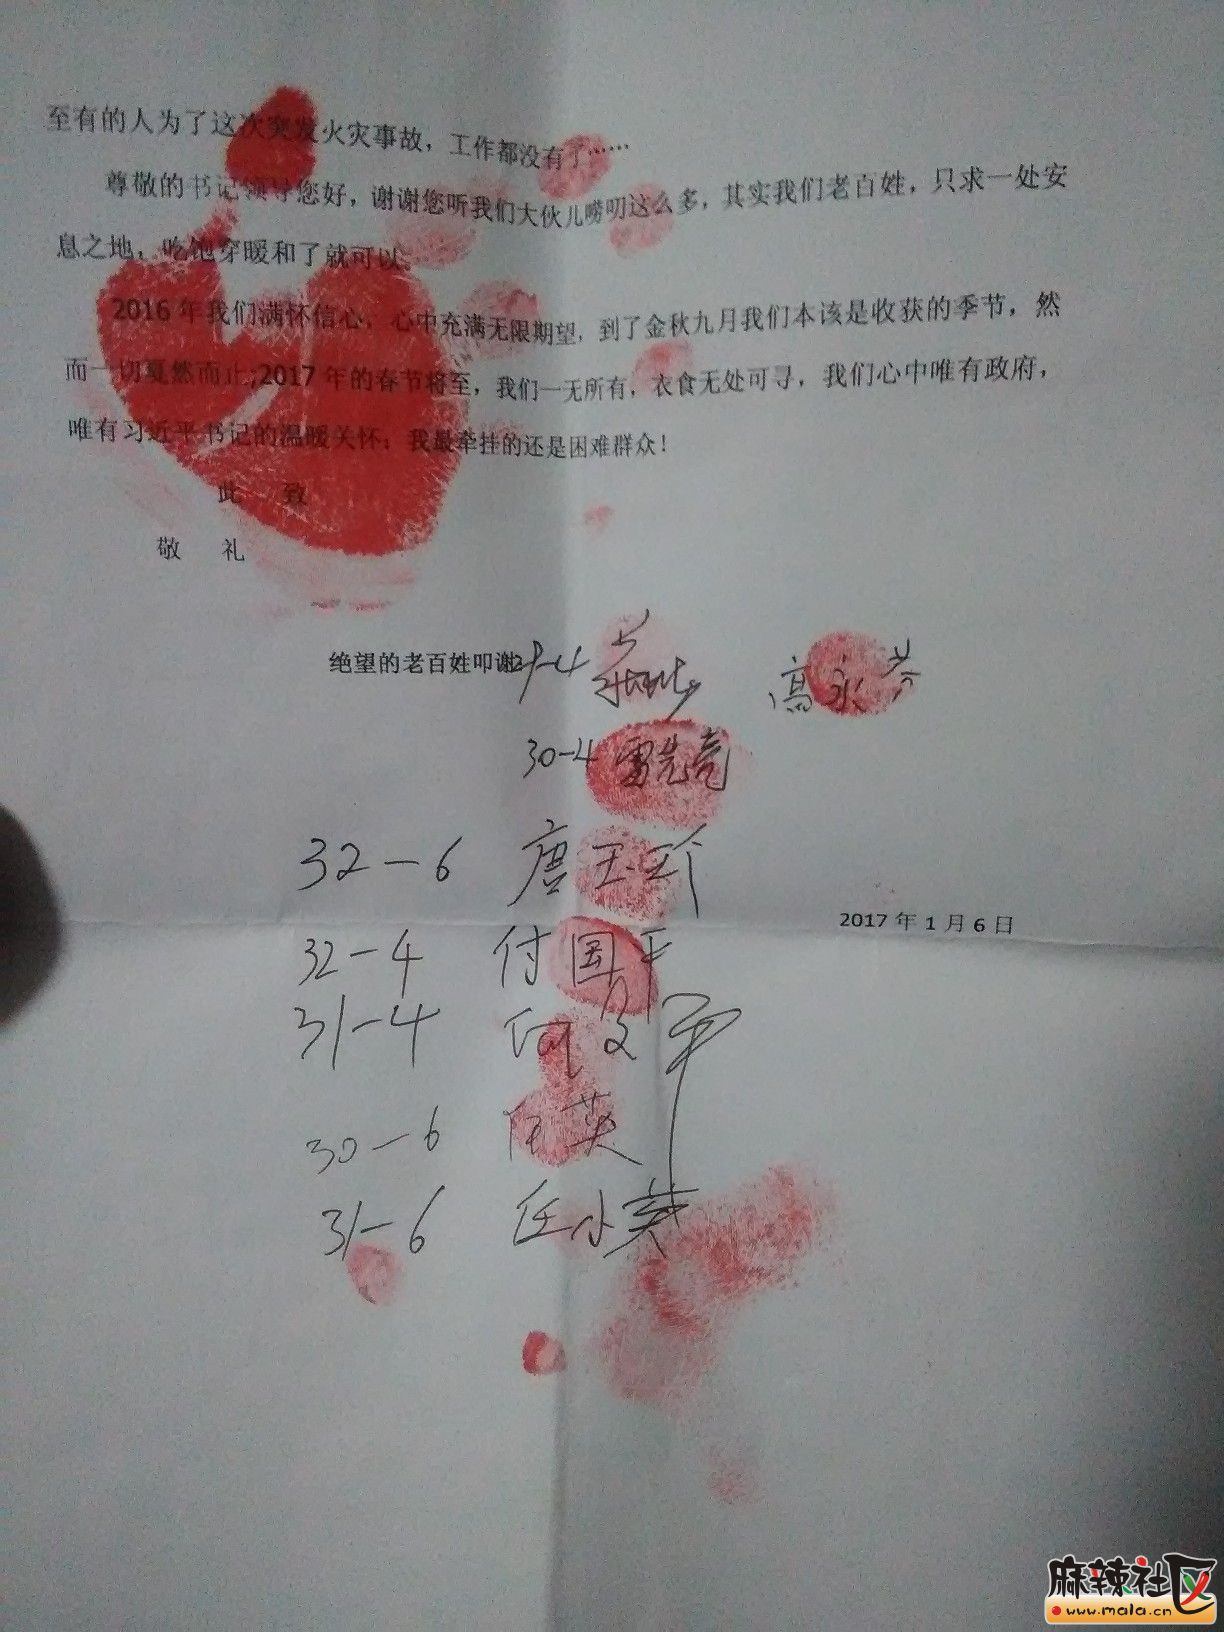 至有的人为了这次突发火灾事故，工作都没有了……
尊敬的书记领导您好，谢谢您听我们大伙儿唠叨这么多，其实我们老百姓，只求一处安
息之地，吃饱穿暖和了就可以。
2016年我们满怀信心，心中充满无限期望，到了金秋九月我们本该是收获的季节，然
而一切戛然而止,2017年的春节将至，我们一无所有，衣食无处可寻，我们心中唯有政府，
唯有习近平书记的温暖关怀：我最牵挂的还是困难群众！
此 致
敬 礼
绝望的老百姓叩谢 29-4 高永芳
30-4 雷先亮
32-6 唐玉珍
2017年1月6日
32-4 付国平
31-4 何文平
30-6 任英
31-6 任小英
麻辣社区
www.mala.cn